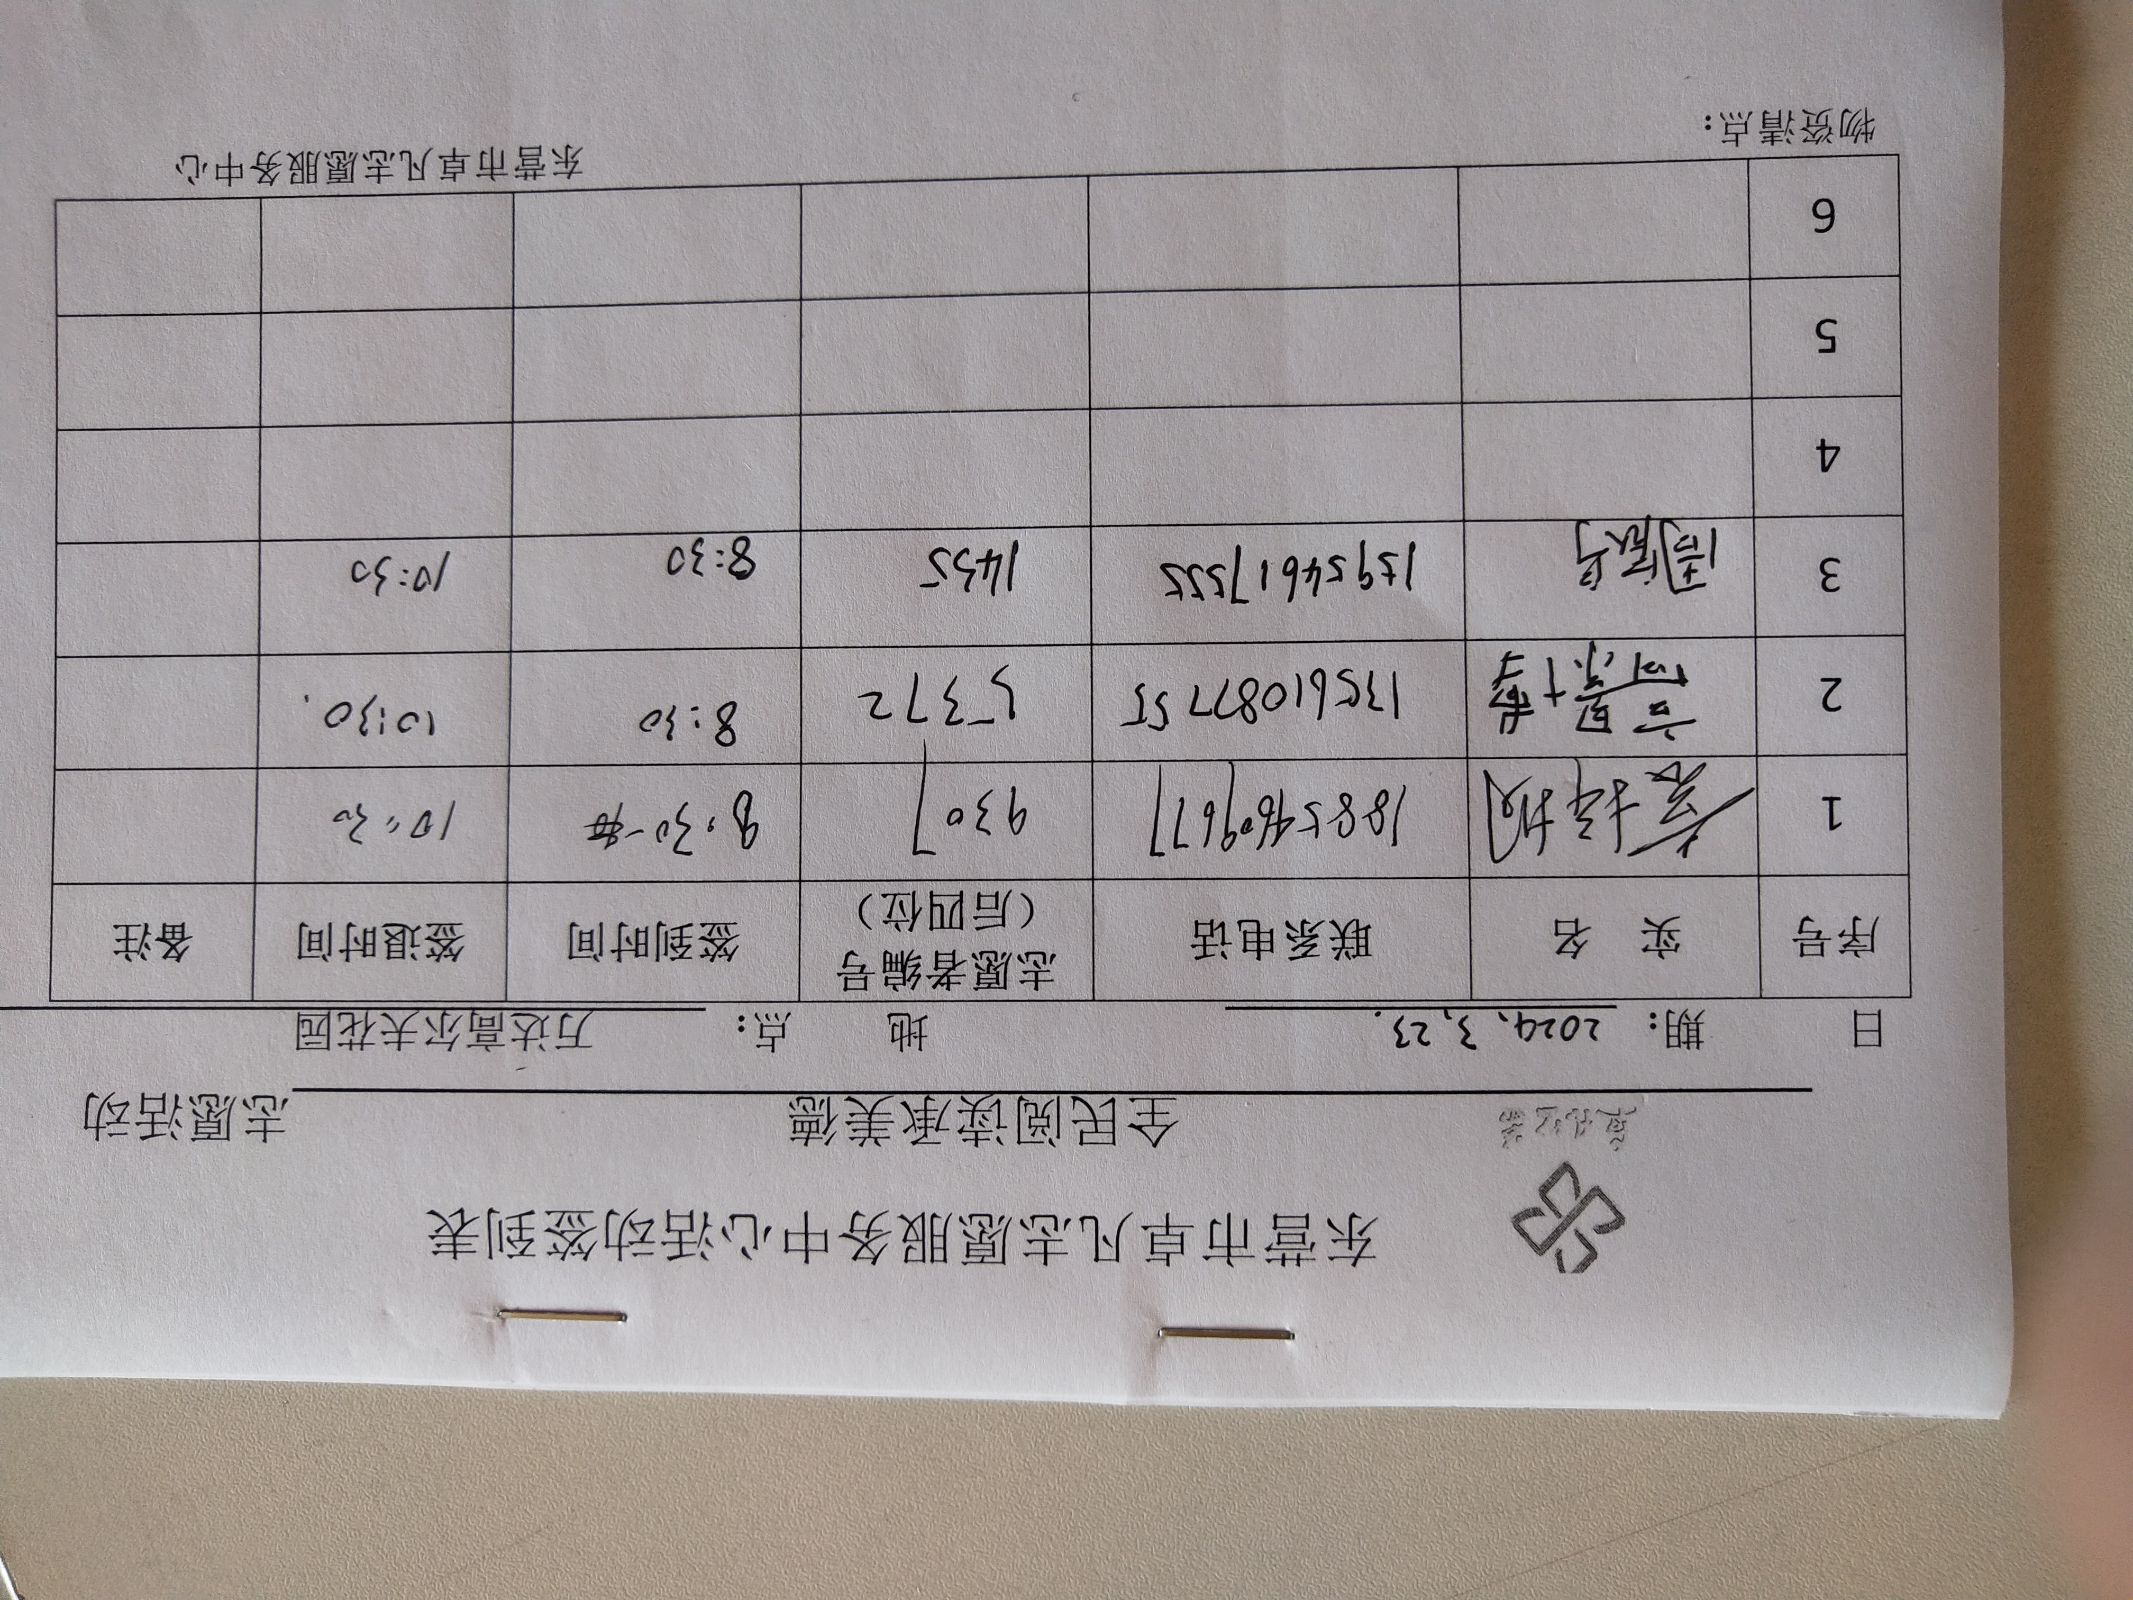 东营市卓凡志愿服务中心活动签到表
卓凡公益
全民阅读承美德 志愿活动
日 期：2024.3.23. 地 点：万达高尔夫花园
序号 实 名 联系电话 志愿者编号（后四位） 签到时间 签退时间 备注
1 18854609677 9307 8:30 10:30
2 13561087755 5372 8:30 10:30.
3 15954617555 1435 8:30 10:30
4
5
6
物资清点：
东营市卓凡志愿服务中心